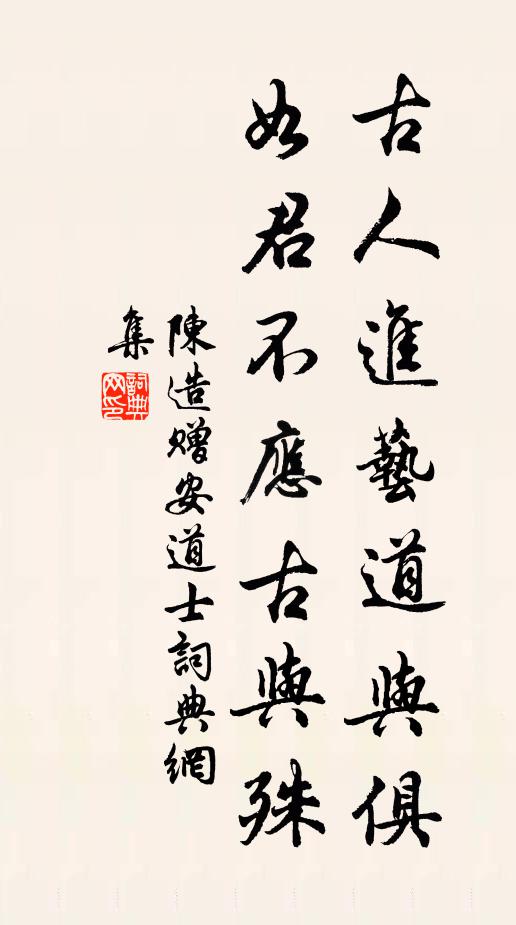 古人進藝道與俱
如君不應古與殊
陳造贈安道士詞典網
集
詞典网印